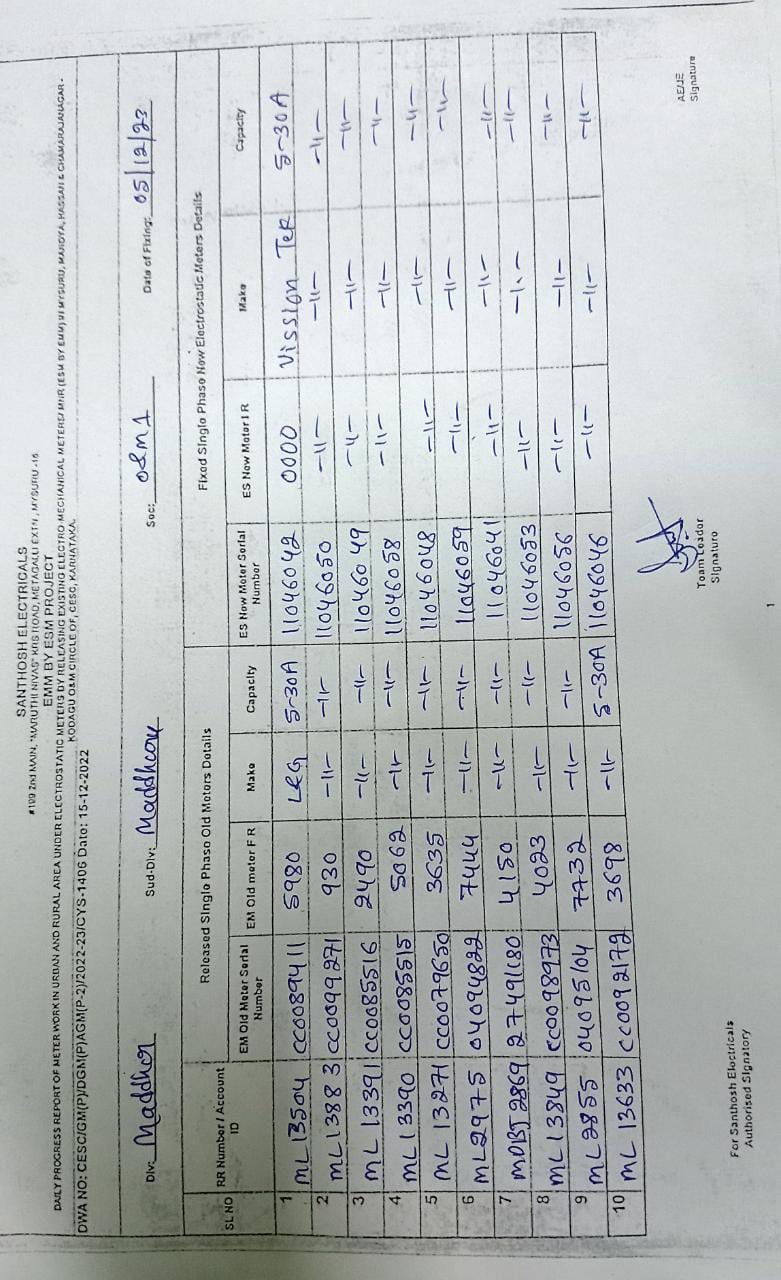 SANTHOSH ELECTRICALS
#199 2nd MAIN, "MARUTHI NIVAS" KRS ROAD, METAGALLI EXTN, MYSURU-16
EMM BY ESM PROJECT
DAILY PROGRESS REPORT OF METER WORK IN URBAN AND RURAL AREA UNDER ELECTROSTATIC METERS BY RELEASING EXISTING ELECTRO-MECHANICAL METERS/ MNR (ESM BY EMM) VI MYSURU, MANDYA, HASSAN & CHAMARAJANAGAR -
KODAGU O&M CIRCLE OF, CESC, KARNATAKA.
DWA NO: CESC/GM(P)/DGM(P)AGM(P-2)/2022-23/CYS-1406 Dato: 15-12-2022
Div: Maddhor Sud-Div: Maddhcom Soc: O&M1 Date of Fixing: 05/12/23
Released Single Phase Old Meters Details Fixed Single Phase New Electrostatic Meters Details
SL NO RR Number / Account ID EM Old Meter Serial Number EM Old meter F R Make Capacity ES New Meter Serial Number ES New Meter I R Make Capacity
1 ML 13504 CC0089411 5980 L&G 5-30A 11046042 0000 Vission Tek 5-30A
2 ML 13883 CC0099271 930 -11- -11- 11046050 -11- -11- -11-
3 ML 13391 CC0085516 2490 -11- -11- 11046049 -11- -11- -11-
4 ML 13390 CC0085515 5062 -11- -11- 11046058 -11- -11- -11-
5 ML 13271 CC0079650 3635 -11- -11- 11046048 -11- -11- -11-
6 ML2975 04094822 7444 -11- -11- 11046059 -11- -11- -11-
7 MDBJ2869 27491180 4150 -11- -11- 11046041 -11- -11- -11-
8 ML 13849 CC0098973 4023 -11- -11- 11046053 -11- -11- -11-
9 ML2855 04095104 7732 -11- -11- 11046056 -11- -11- -11-
10 ML 13633 CC0092172 3698 -11- 5-30A 11046046 -11- -11- -11-
For Santhosh Electricals
Authorised Signatory
Team Leader
Signature
AE/JE
Signature
1